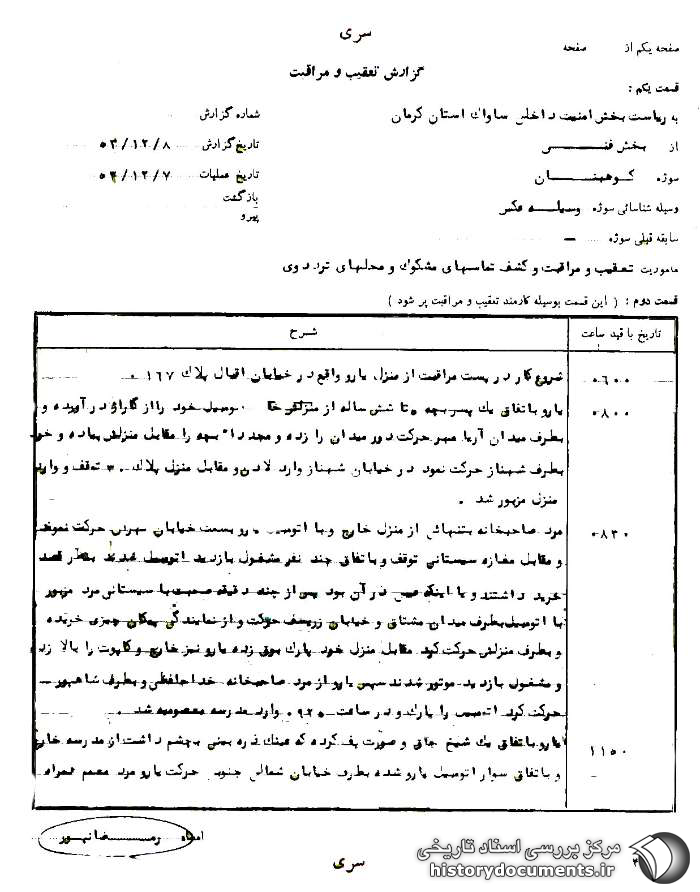 سری
صفحه یکم از صفحه
گزارش تعقیب و مراقبت
قسمت یکم :
به ریاست بخش امنیت داخلی ساواک استان کرمان
شماره گزارش
از بخش فنی
تاریخ گزارش ۵۳/۱۲/۸
سوژه کوهبنان
تاریخ عملیات ۵۳/۱۲/۷
وسیله شناسائی سوژه وسیله عکس
بازگشت
پیرو
سابقه قبلی سوژه —
ماموریت تعقیب و مراقبت و کشف تماسهای مشکوک و محلهای تردد وی
قسمت دوم : ( این قسمت بوسیله کارمند تعقیب و مراقبت پر شود )
تاریخ با قید ساعت
شرح
۰۶۰۰ شروع کار در پست مراقبت از منزل یارو واقع در خیابان اقبال پلاک ۱۶۷ ۰
۰۸۰۰ یارو باتفاق یک پسر بچه ۵ تا شش ساله از منزلش خا اتومبیل خود را از گاراژ در آورده و
بطرف میدان آریا مهر حرکت دور میدان را زده و مجددا" بچه را مقابل منزلش پیاده و خو
بطرف شهناز حرکت نمود در خیابان شهناز وارد لادن و مقابل منزل پلاک توقف و وارد
منزل مزبور شد .
۰۸۳۰ مرد صاحبخانه بتنهائی از منزل خارج و با اتومبیل یارو بسمت خیابان حرکت نمود
و مقابل مغازه سیستانی توقف و باتفاق چند نفر مشغول بازدید اتومبیل شدند بنظر قصد
خرید داشتند و یا اینکه عیبی در آن بود پس از چند دقیقه صحبت با سیستانی مرد مزبور
با اتومبیل بطرف میدان مشتاق و خیابان زریسف حرکت و از نمایندگی پیکان چیزی خریده
و بطرف منزلش حرکت کرد مقابل منزل خود پارک بوق زده یارو نیز خارج و کاپوت را بالا زده
و مشغول بازدید موتور شدند سپس یارو از مرد صاحبخانه خداحافظی و بطرف شاهپور
حرکت کرد اتومبیل را پارک و در ساعت ۰۹۲۰ وارد مدرسه معصومیه شد .
۱۱۵۰ یارو باتفاق یک شیخ چاق و صورت پف کرده که عینک ذره بینی بچشم داشت از مدرسه خارج
و باتفاق سوار اتومبیل یارو شده بطرف خیابان شمالی جنوبی حرکت یارو مرد معمم همراه
امضاء رمضانپور
سری
مرکز بررسی اسناد تاریخی
historydocuments.ir